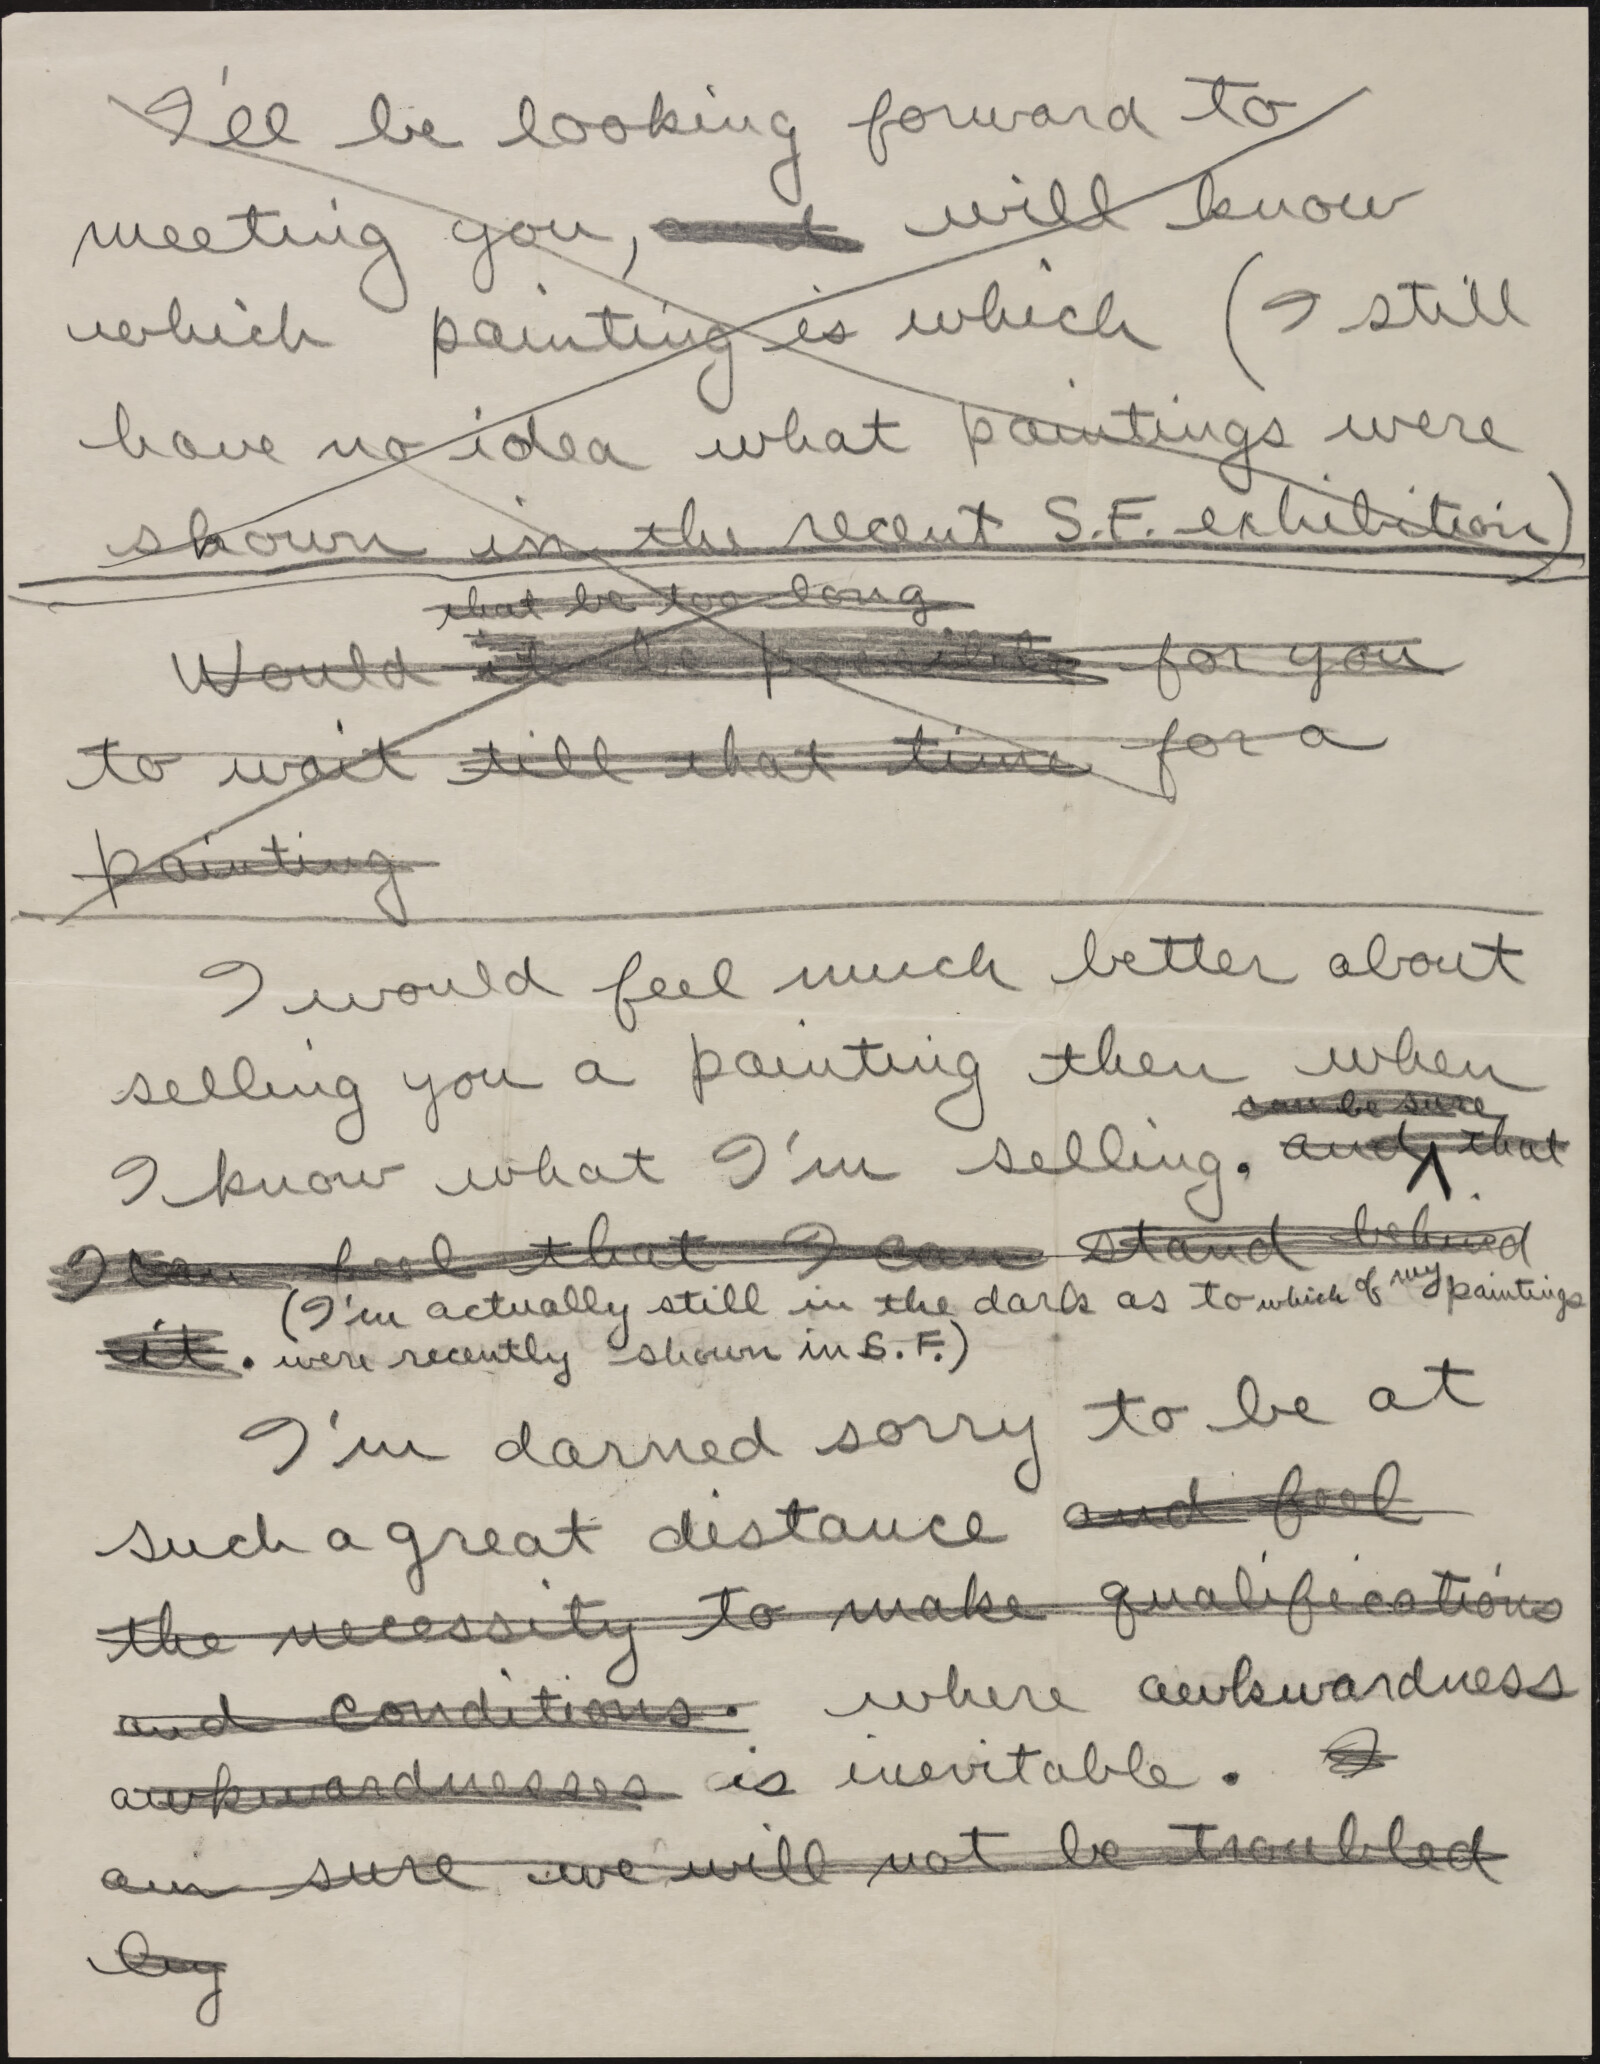 I'll be looking forward to
meeting you, and will know
which painting is which (I still
have no idea what paintings were
shown in the recent S.F. exhibition)
that be too long
Would it be possible for you
to wait till that time for a
painting
I would feel much better about
selling you a painting then when
can be sure
I know what I'm selling. and that
I can feel that I can stand behind
(I'm actually still in the dark as to which of my paintings
it. were recently shown in S.F.)
I'm darned sorry to be at
such a great distance and feel
the necessity to make qualifications
and conditions. where awkwardness
awkwardnesses is inevitable. I
am sure we will not be troubled
by